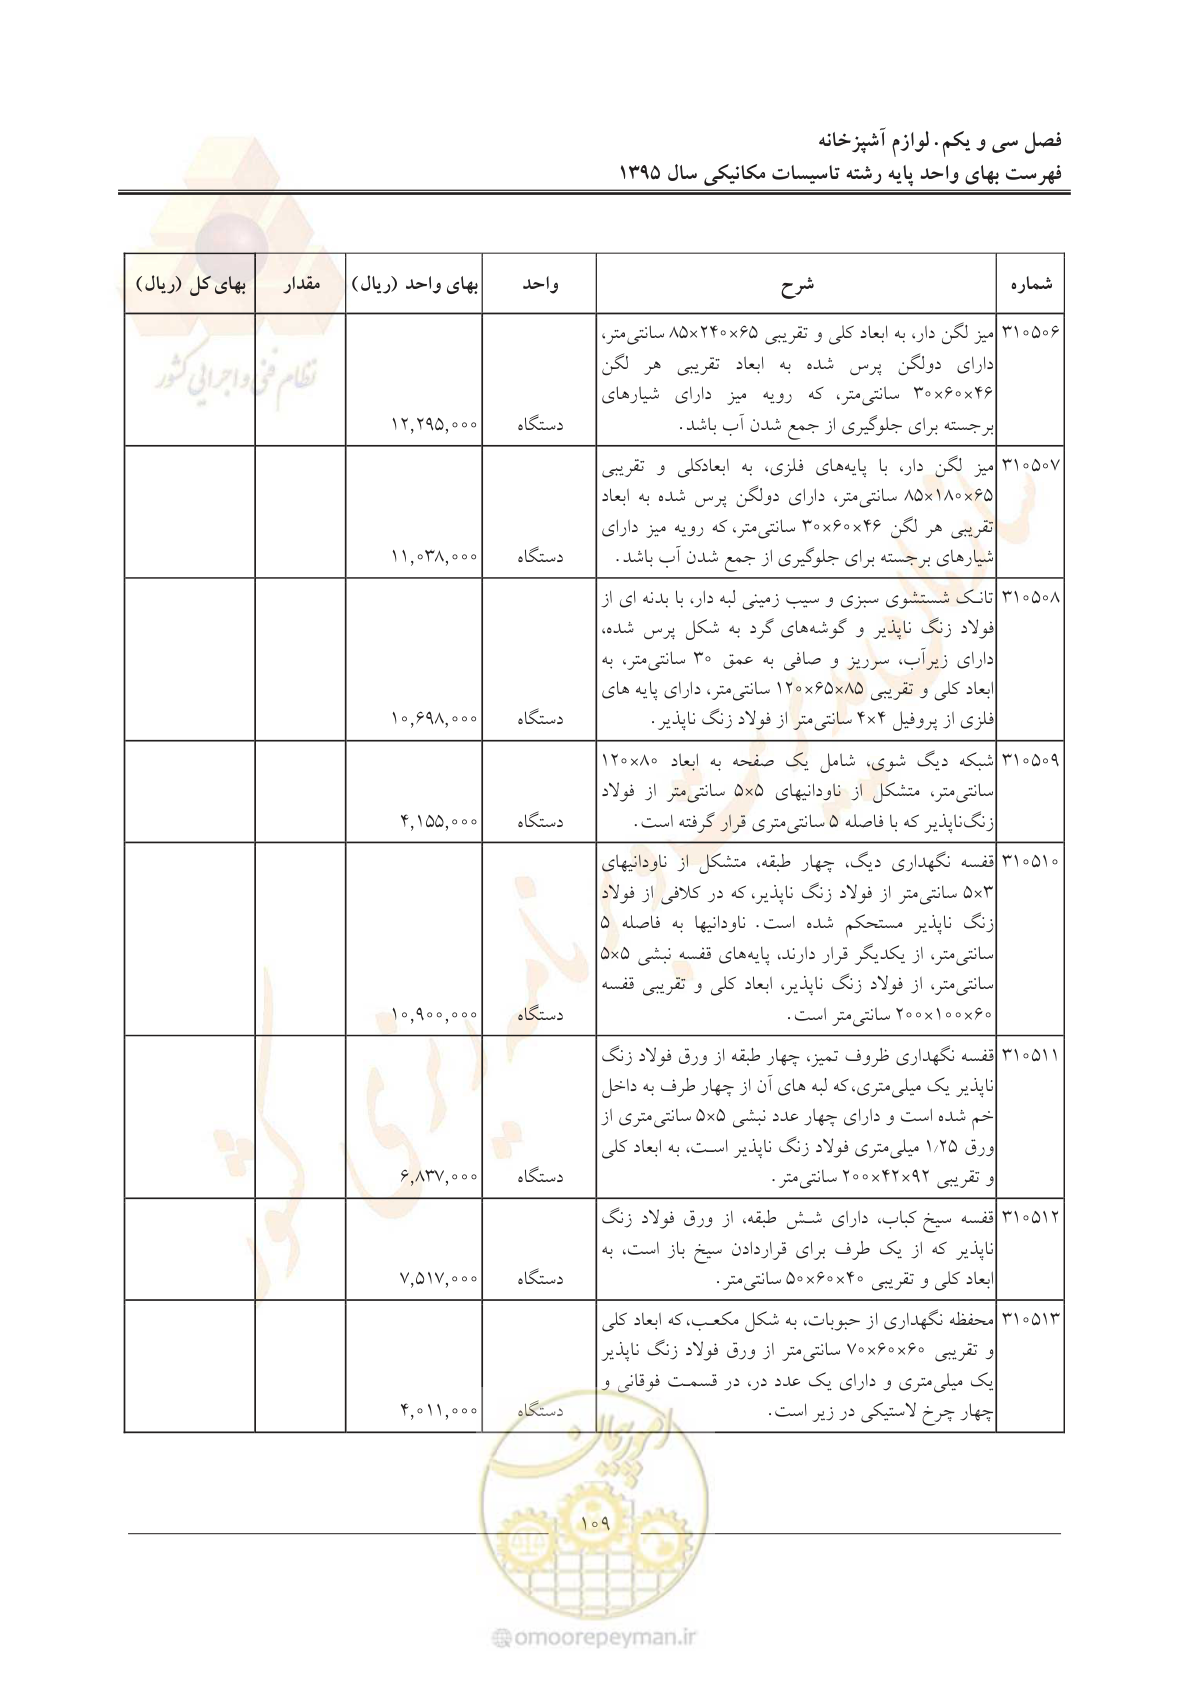 فصل سی و یکم. لوازم آشپزخانه
فهرست بهای واحد پایه رشته تاسیسات مکانیکی سال ۱۳۹۵
شماره شرح واحد بهای واحد (ریال) مقدار بهای کل (ریال)
۳۱۰۵۰۶ میز لگن دار، به ابعاد کلی و تقریبی ۶۵×۲۴۰×۸۵ سانتی‌متر،
دارای دولگن پرس شده به ابعاد تقریبی هر لگن
۴۶×۶۰×۳۰ سانتی‌متر، که رویه میز دارای شیارهای
برجسته برای جلوگیری از جمع شدن آب باشد. دستگاه ۱۲,۲۹۵,۰۰۰
۳۱۰۵۰۷ میز لگن دار، با پایه‌های فلزی، به ابعادکلی و تقریبی
۶۵×۱۸۰×۸۵ سانتی‌متر، دارای دولگن پرس شده به ابعاد
تقریبی هر لگن ۴۶×۶۰×۳۰ سانتی‌متر، که رویه میز دارای
شیارهای برجسته برای جلوگیری از جمع شدن آب باشد. دستگاه ۱۱,۰۳۸,۰۰۰
۳۱۰۵۰۸ تانک شستشوی سبزی و سیب زمینی لبه دار، با بدنه ای از
فولاد زنگ ناپذیر و گوشه‌های گرد به شکل پرس شده،
دارای زیرآب، سرریز و صافی به عمق ۳۰ سانتی‌متر، به
ابعاد کلی و تقریبی ۸۵×۶۵×۱۲۰ سانتی‌متر، دارای پایه های
فلزی از پروفیل ۴×۴ سانتی‌متر از فولاد زنگ ناپذیر. دستگاه ۱۰,۶۹۸,۰۰۰
۳۱۰۵۰۹ شبکه دیگ شوی، شامل یک صفحه به ابعاد ۸۰×۱۲۰
سانتی‌متر، متشکل از ناودانیهای ۵×۵ سانتی‌متر از فولاد
زنگ‌ناپذیر که با فاصله ۵ سانتی‌متری قرار گرفته است. دستگاه ۴,۱۵۵,۰۰۰
۳۱۰۵۱۰ قفسه نگهداری دیگ، چهار طبقه، متشکل از ناودانیهای
۳×۵ سانتی‌متر از فولاد زنگ ناپذیر، که در کلافی از فولاد
زنگ ناپذیر مستحکم شده است. ناودانیها به فاصله ۵
سانتی‌متر، از یکدیگر قرار دارند، پایه‌های قفسه نبشی ۵×۵
سانتی‌متر، از فولاد زنگ ناپذیر، ابعاد کلی و تقریبی قفسه
۶۰×۱۰۰×۲۰۰ سانتی‌متر است. دستگاه ۱۰,۹۰۰,۰۰۰
۳۱۰۵۱۱ قفسه نگهداری ظروف تمیز، چهار طبقه از ورق فولاد زنگ
ناپذیر یک میلی‌متری، که لبه های آن از چهار طرف به داخل
خم شده است و دارای چهار عدد نبشی ۵×۵ سانتی‌متری از
ورق ۱/۲۵ میلی‌متری فولاد زنگ ناپذیر است، به ابعاد کلی
و تقریبی ۹۲×۴۲×۲۰۰ سانتی‌متر. دستگاه ۶,۸۳۷,۰۰۰
۳۱۰۵۱۲ قفسه سیخ کباب، دارای شش طبقه، از ورق فولاد زنگ
ناپذیر که از یک طرف برای قراردادن سیخ باز است، به
ابعاد کلی و تقریبی ۴۰×۶۰×۵۰ سانتی‌متر. دستگاه ۷,۵۱۷,۰۰۰
۳۱۰۵۱۳ محفظه نگهداری از حبوبات، به شکل مکعب، که ابعاد کلی
و تقریبی ۶۰×۶۰×۷۰ سانتی‌متر از ورق فولاد زنگ ناپذیر
یک میلی‌متری و دارای یک عدد در، در قسمت فوقانی و
چهار چرخ لاستیکی در زیر است. دستگاه ۴,۰۱۱,۰۰۰
نظام فنی و اجرایی کشور
سازمان مدیریت و برنامه ریزی کشور
امور پیمان
۱۰۹
omoorepeyman.ir